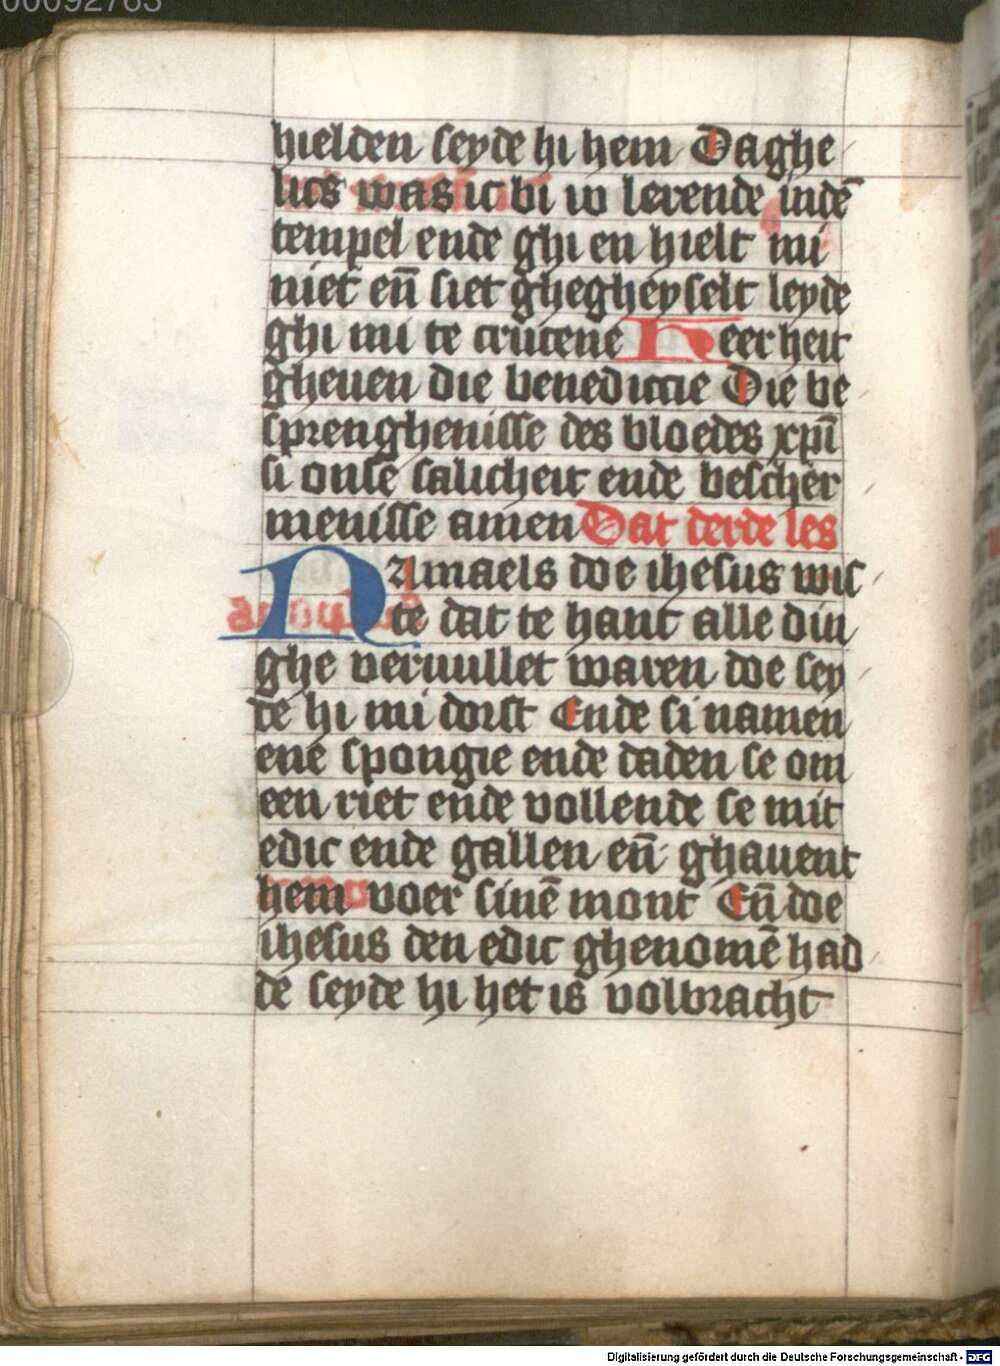 00092763
hielden seyde hi hem Daghe
lics was ic bi iv lerende indē
tempel ende ghi en hielt mi
niet en̄ siet ghegheyselt leyde
ghi mi te crucene Heer heit
gheuen die benedictie Die be
sprenghenisse des bloedes xp̄i
si onse salicheit ende bescher
menisse amen Dat derde les
Namaels doe ihesus wis
te dat te hant alle din
ghe veruullet waren doe sey
de hi mi dorst Ende si namen
ene spongie ende daden se om
een riet ende vollende se mit
edic ende gallen en̄ ghauent
hem voer sinē mont En̄ doe
ihesus den edic ghenomē had
de seyde hi het is volbracht
Digitalisierung gefördert durch die Deutsche Forschungsgemeinschaft - DFG